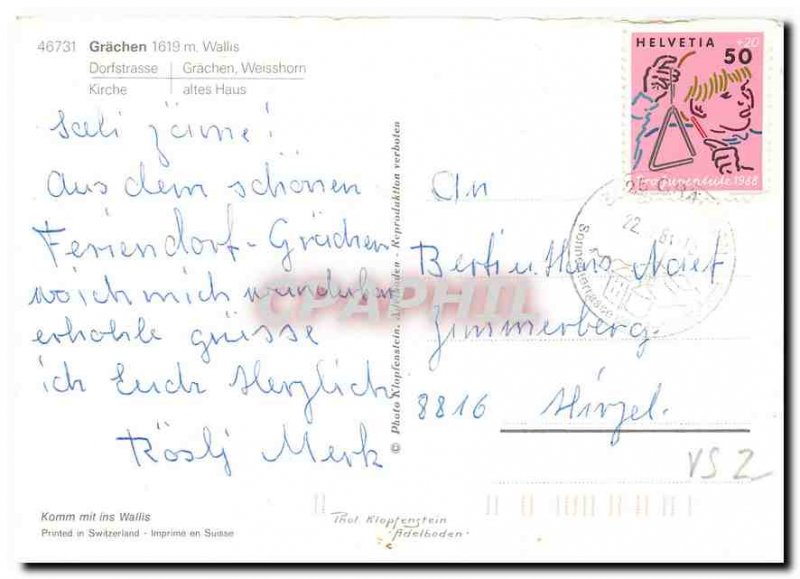 46731 Grächen 1619 m. Wallis
Dorfstrasse Grächen, Weisshorn
Kirche altes Haus
Sali zäme!
Aus dem schönen
Feriendorf-Grächen
wo ich mich wunderbar
erhohle grüsse
ich Euch Herzlich
Rösly Merk
Komm mit ins Wallis
Printed in Switzerland - Imprimé en Suisse
© Photo Klopfenstein, Adelboden - Reproduktion verboten
CPAPHIL
HELVETIA 50 +20
Pro Juventute 1988
An
Berti u. Hans Naef
Zimmerberg.
8816 Hirzel.
VS 2
Phot. Klopfenstein
"Adelboden"